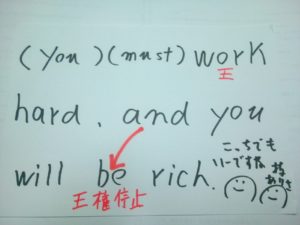 (You)(must) work
王
hard, and you
will be rich.
王権停止
こっちでも
いーですね